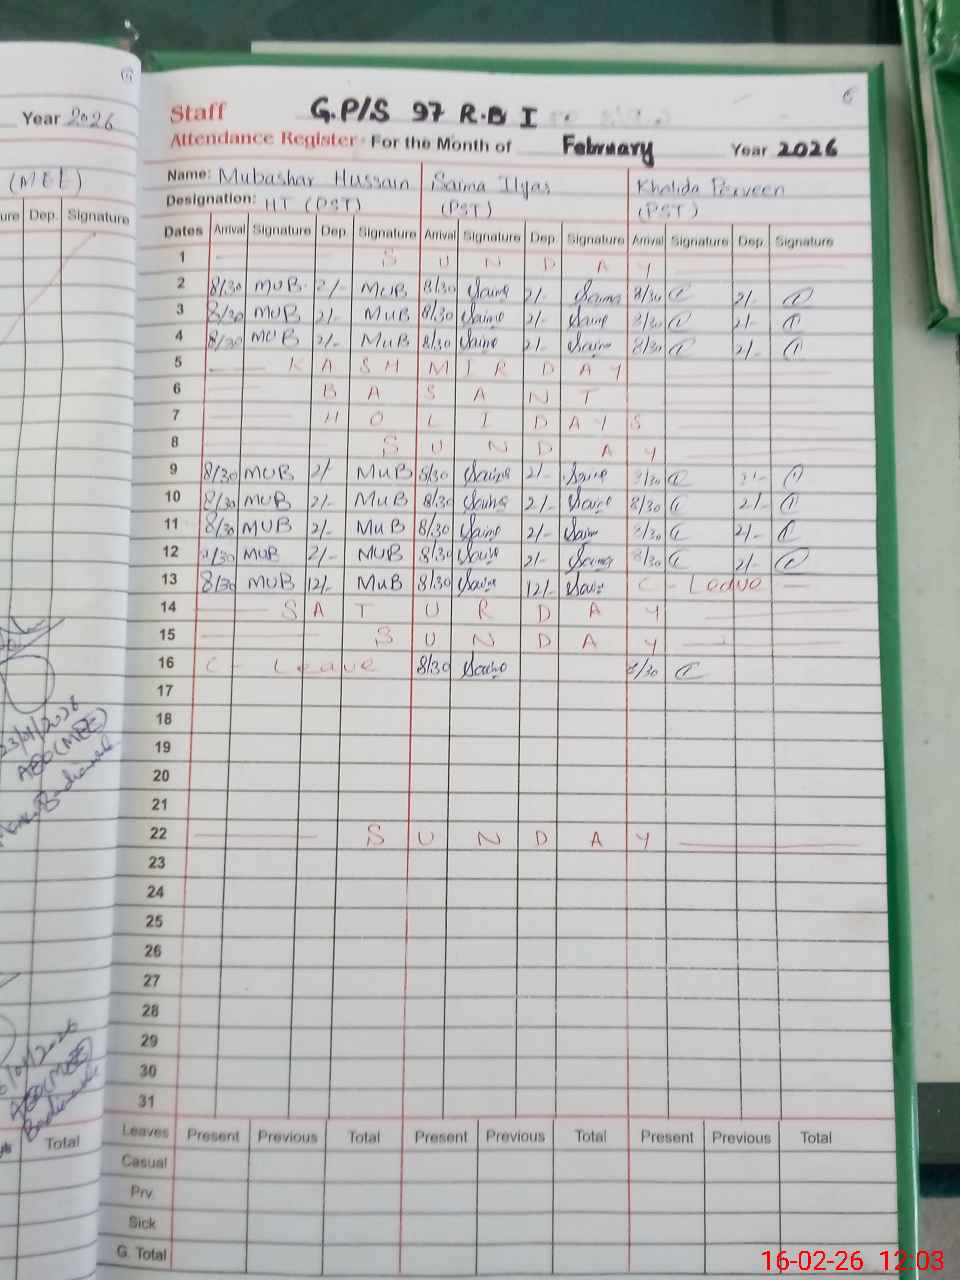 Year 2026
(MEE)
Dep. Signature
23/01/2026
AEO (MEE)
AEO (MEE)
Total
6
Staff G.P/S 97 R.B I
Attendance Register: For the Month of February Year 2026
Name: Mubashar Hussain Saima Ilyas Khalida Parveen
Designation: HT (PST) (PST) (PST)
Dates Arrival Signature Dep. Signature Arrival Signature Dep. Signature Arrival Signature Dep. Signature
1 S U N D A Y
2 8/30 MUB 2/- MUB 8/30 Saima 2/- Saima 8/30 2/-
3 8/30 MUB 2/- MUB 8/30 Saima 2/- Saima 8/30 2/-
4 8/30 MUB 2/- MUB 8/30 Saima 2/- Saima 8/30 2/-
5 K A S H M I R D A Y
6 B A S A N T
7 H O L I D A Y S
8 S U N D A Y
9 8/30 MUB 2/- MUB 8/30 Saima 2/- Saima 8/30 2/-
10 8/30 MUB 2/- MUB 8/30 Saima 2/- Saima 8/30 2/-
11 8/30 MUB 2/- MUB 8/30 Saima 2/- Saima 8/30 2/-
12 8/30 MUB 2/- MUB 8/30 Saima 2/- Saima 8/30 2/-
13 8/30 MUB 12/- MUB 8/30 Saima 12/- Saima C - Leave
14 S A T U R D A Y
15 S U N D A Y
16 C - Leave 8/30 Saima 8/30
17
18
19
20
21
22 S U N D A Y
23
24
25
26
27
28
29
30
31
Leaves Present Previous Total Present Previous Total Present Previous Total
Casual
Prv.
Sick
G. Total
16-02-26 12:03